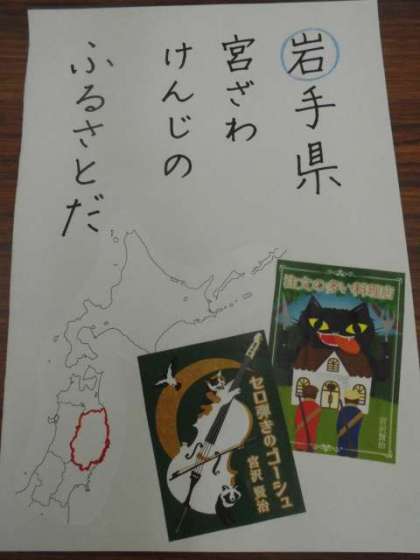 岩手県
宮ざわ
けんじの
ふるさとだ
注文の多い料理店
宮沢賢治
セロ弾きのゴーシュ
宮沢賢治